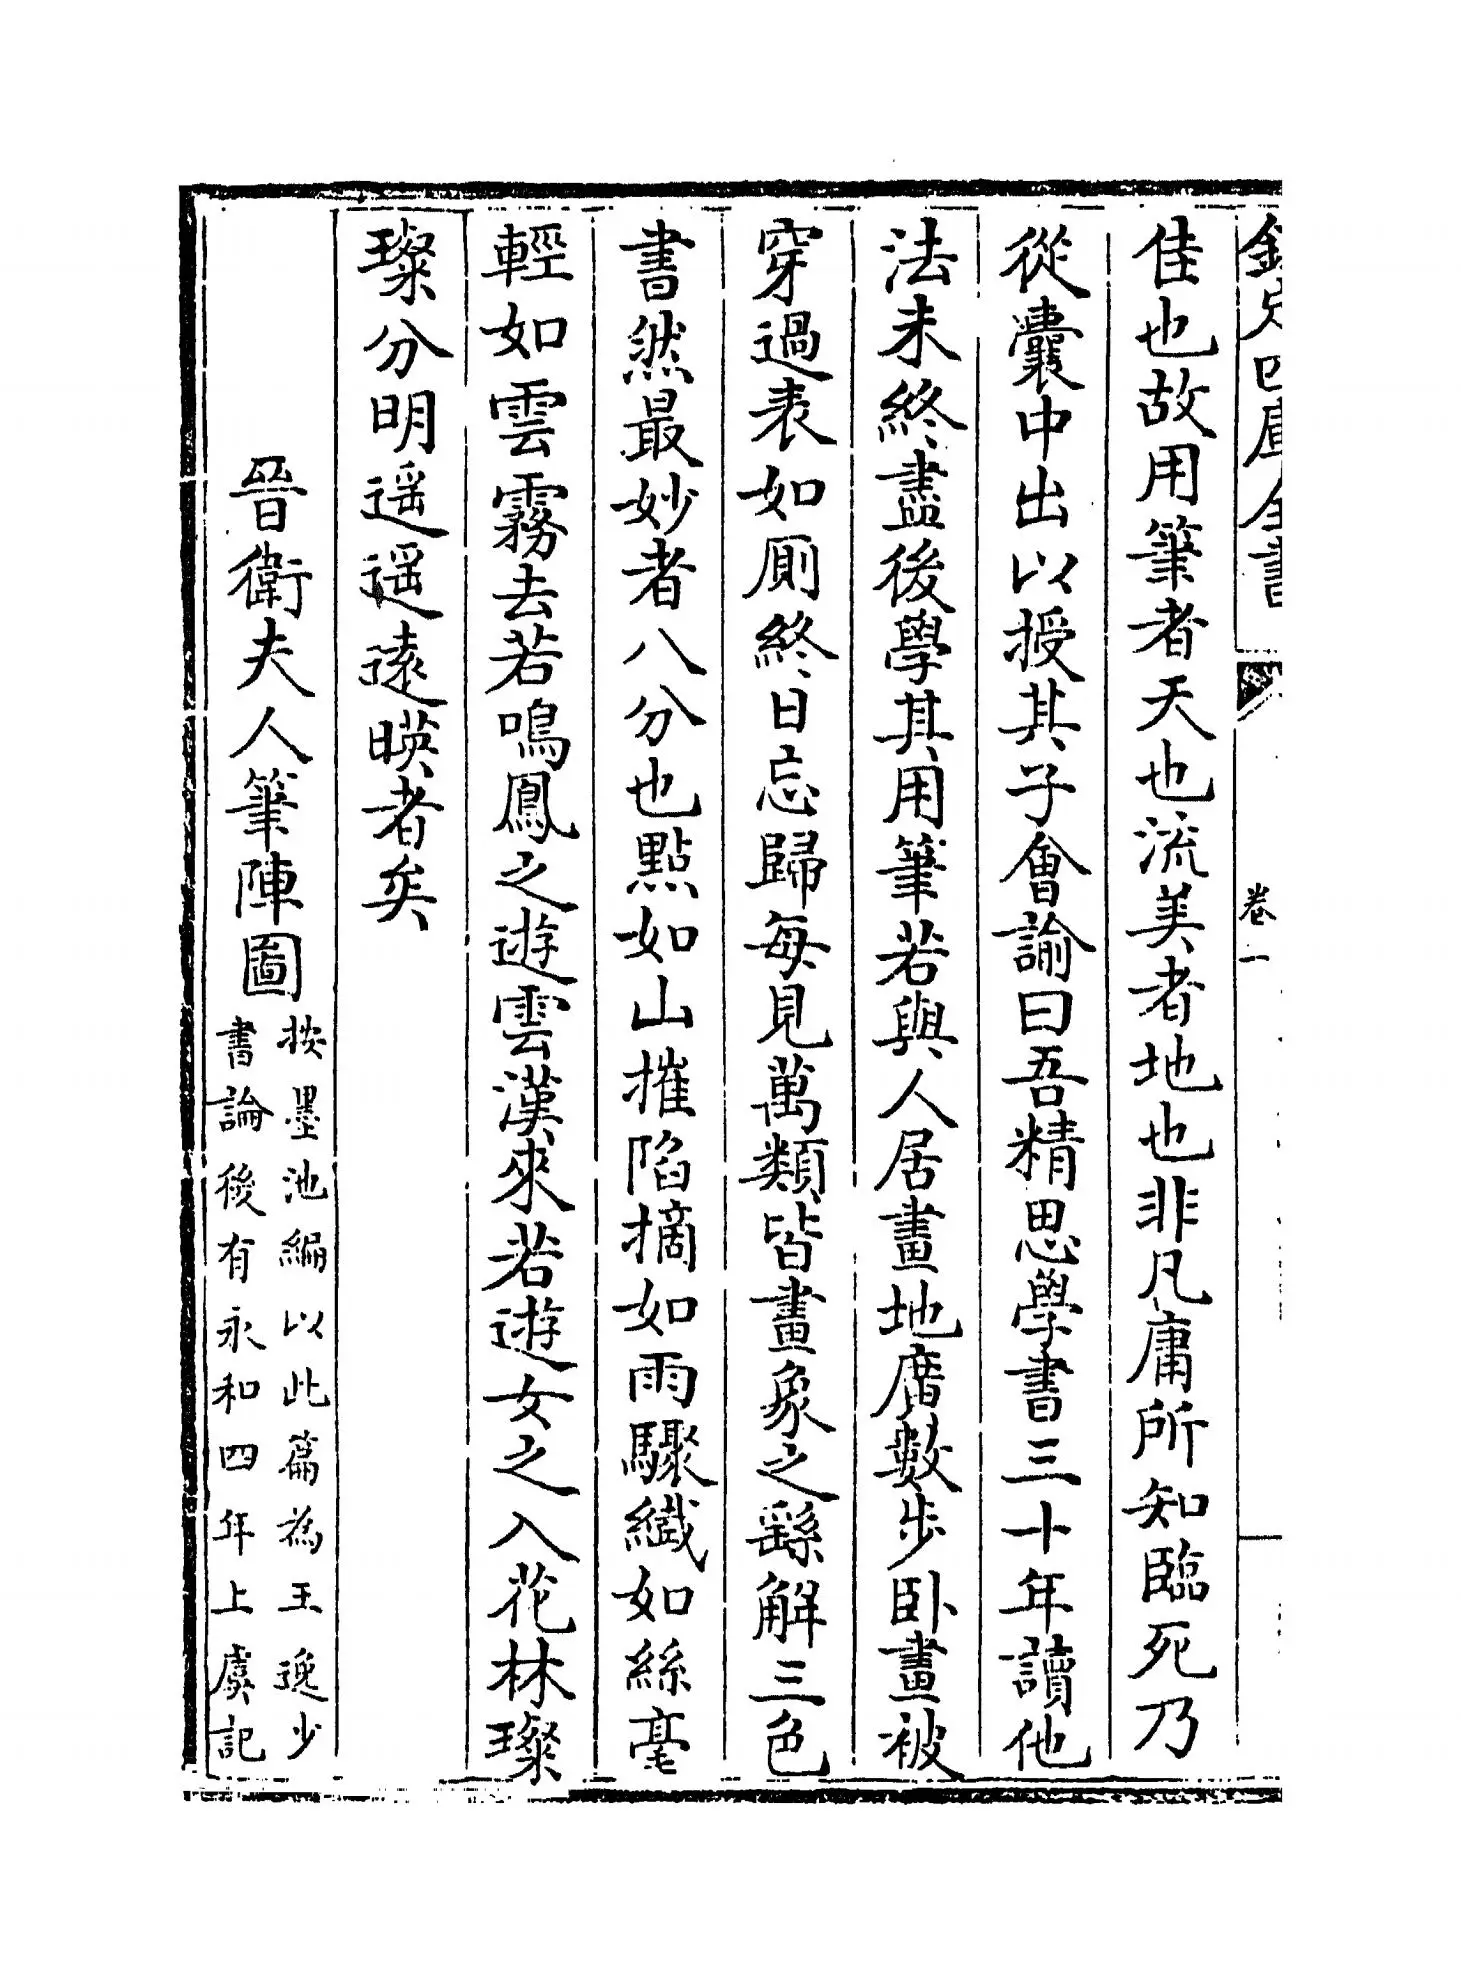 欽定四庫全書
卷一
佳也故用筆者天也流美者地也非凡庸所知臨死乃
從囊中出以授其子會諭曰吾精思學書三十年讀他
法未終盡後學其用筆若與人居畫地廣數步卧畫被
穿過表如厠終日忘歸每見萬類皆畫象之繇解三色
書然最妙者八分也點如山摧陷摘如雨驟纎如絲毫
輕如雲霧去若鳴鳳之遊雲漢來若遊女之入花林璨
璨分明遥遥逺暎者矣
晉衛夫人筆陣圖
按墨池編以此篇為王逸少
書論後有永和四年上虞記